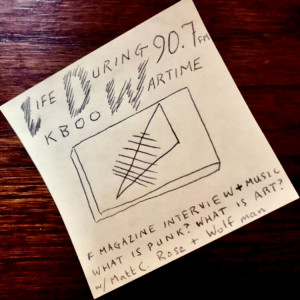 LIFE DURING 90.7 fm
KBOO WARTIME
F MAGAZINE INTERVIEW + MUSIC
WHAT IS PUNK? WHAT IS ART?
w/ Matt C. Rose + Wolfman